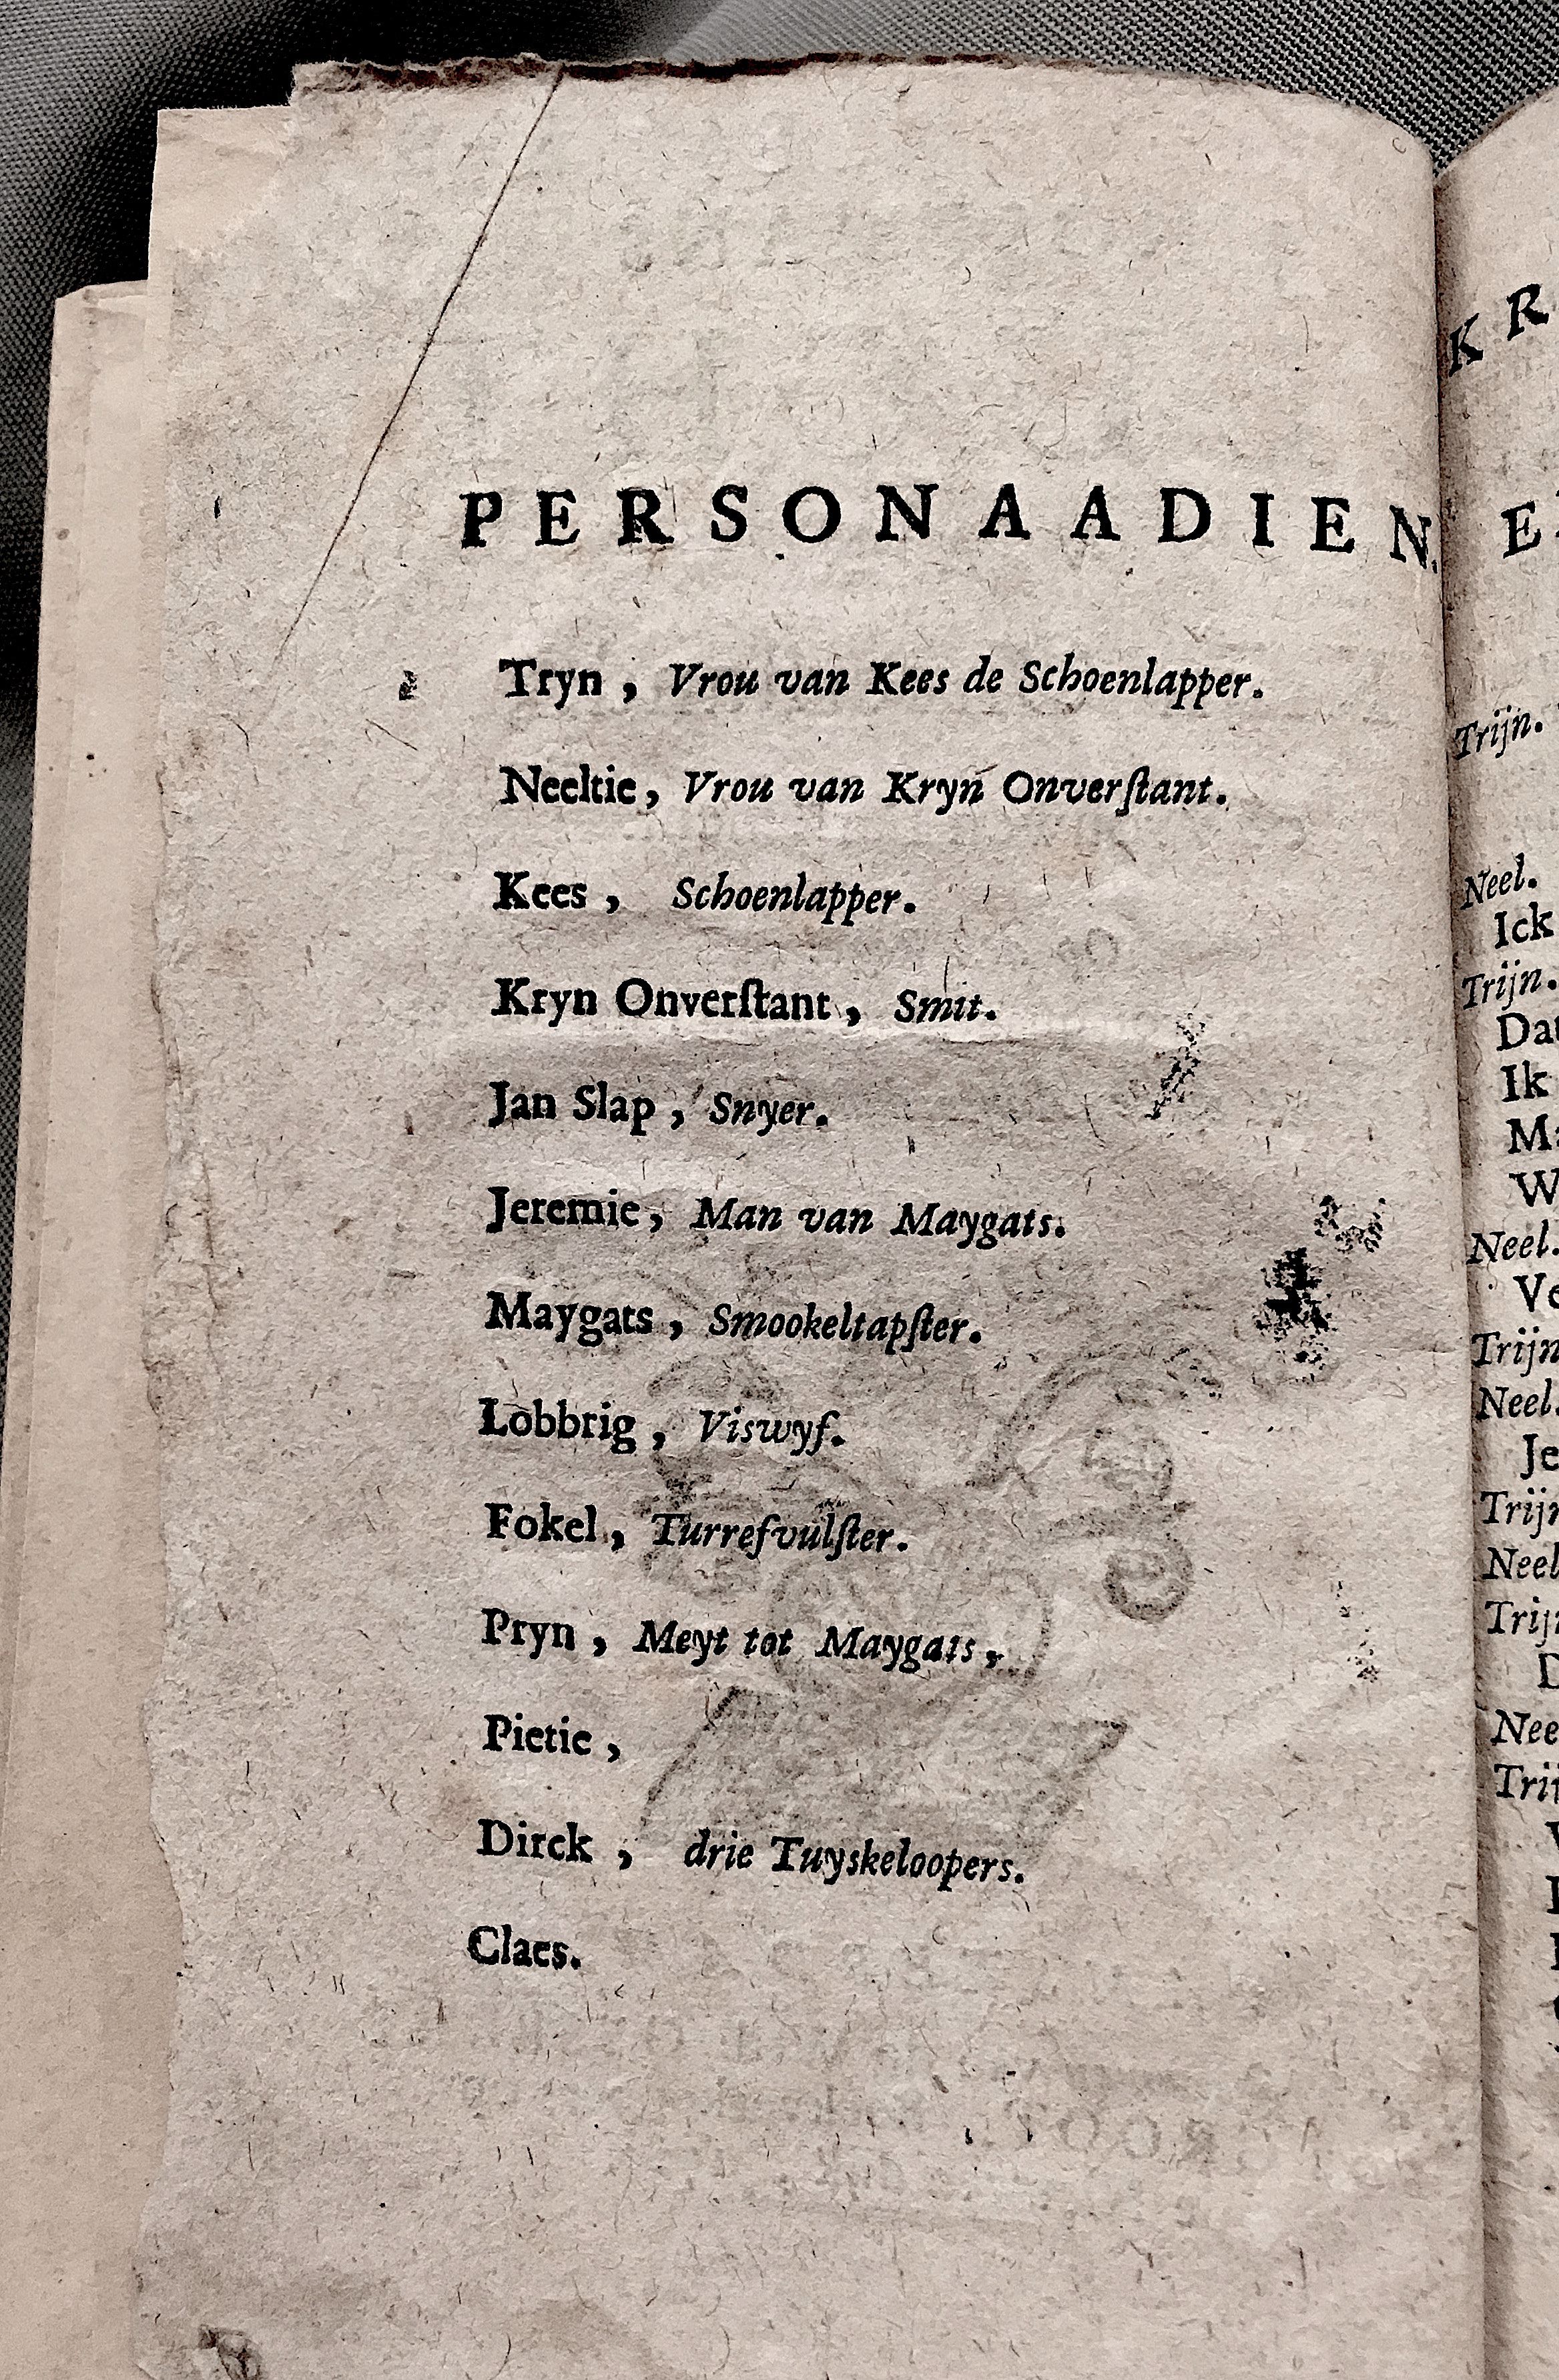 PERSONAADIEN.
Tryn, Vrou van Kees de Schoenlapper.
Neeltie, Vrou van Kryn Onverſtant.
Kees, Schoenlapper.
Kryn Onverſtant, Smit.
Jan Slap, Snyer.
Jeremie, Man van Maygats.
Maygats, Smookeltapſter.
Lobbrig, Viswyf.
Fokel, Turrefvulſter.
Pryn, Meyt tot Maygats,
Pietie,
Dirck, drie Tuyskeloopers.
Claes.
KR
E
Trijn.
Neel.
Ick
Trijn.
Dat
Ik
W
Neel.
Trijn
Neel.
Je
Trijn
Neel
Trijn
D
Nee
Trij